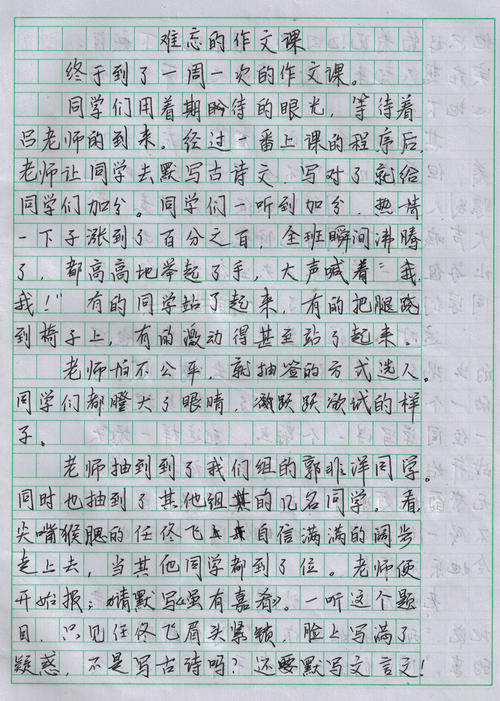 难忘的作文课
终于到了一周一次的作文课。
同学们用着期盼待的眼光，等待着
吕老师的到来。经过一番上课的程序后，
老师让同学去默写古诗文，写对了就给
同学们加分。同学们一听到加分，热情
一下子涨到了百分之百，全班瞬间沸腾
了，都高高地举起了手，大声喊着“我，
我！”有的同学站了起来，有的把腿跷
到椅子上，有的激动得甚至站了起来。
老师怕不公平，就抽签的方式选人。
同学们都瞪大了眼睛，激跃跃欲试的样
子。
老师抽到到了我们组的郭非洋同学。
同时也抽到了其他组其的几名同学。看，
尖嘴猴腮的任佟飞自信满满的阔步
走上去，当其他同学都到了位。老师便
开始报：“请默写《虽有嘉肴》。一听这个题
目，只见任佟飞眉头紧锁，脸上写满了
疑惑，不是写古诗吗？还要默写文言文！